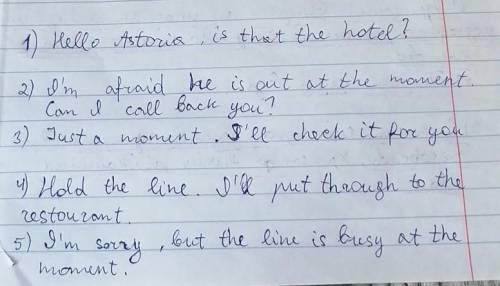 1) Hello Astoria, is that the hotel?
2) I'm afraid he is out at the moment.
Can I call back you?
3) Just a moment. I'll check it for you
4) Hold the line. I'll put through to the
restourant.
5) I'm sorry, but the line is busy at the
moment.